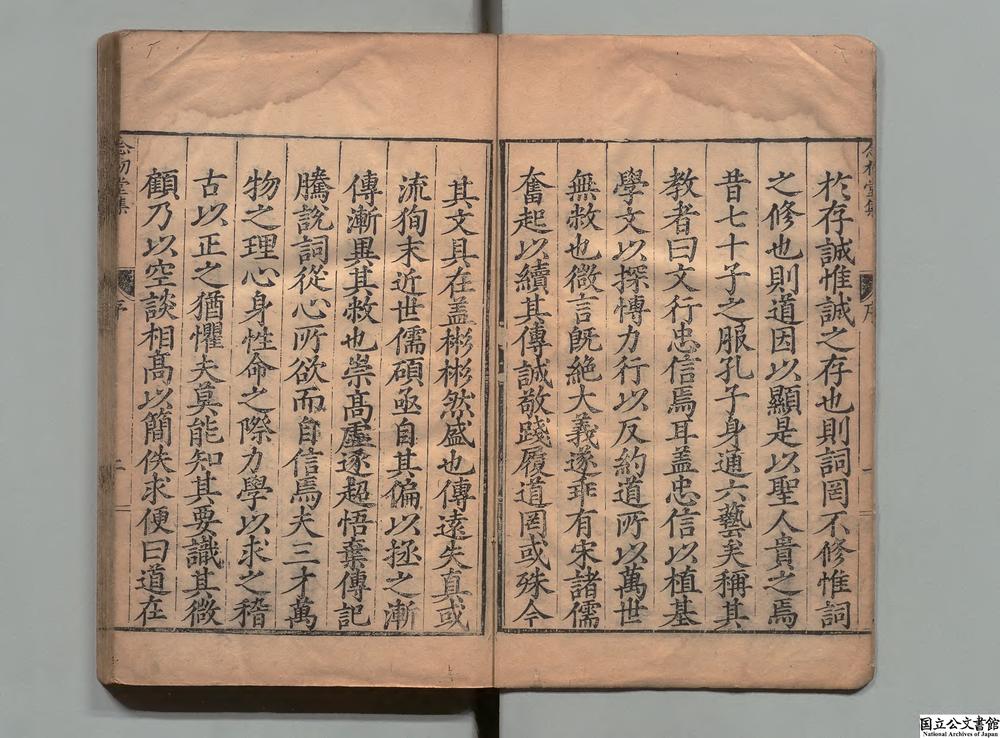 於存誠惟誠之存也則詞罔不修惟詞
之修也則道因以顯是以聖人貴之焉
昔七十子之服孔子身通六藝矣稱其
教者曰文行忠信焉耳盖忠信以植基
學文以探博力行以反約道所以萬世
無敝也微言旣絶大義遂乖有宋諸儒
奮起以續其傳誠敬踐履道罔或殊今
其文具在盖彬彬然盛也傳遠失真或
流狥末近世儒碩亟自其偏以拯之漸
傳漸異其敝也崇髙虛逐超悟棄傳記
騰說詞從心所欲而自信焉夫三才萬
物之理心身性命之際力學以求之稽
古以正之猶懼夫莫能知其要識其微
顧乃以空談相髙以簡佚求便曰道在
念初堂集
序
二
国立公文書館
National Archives of Japan